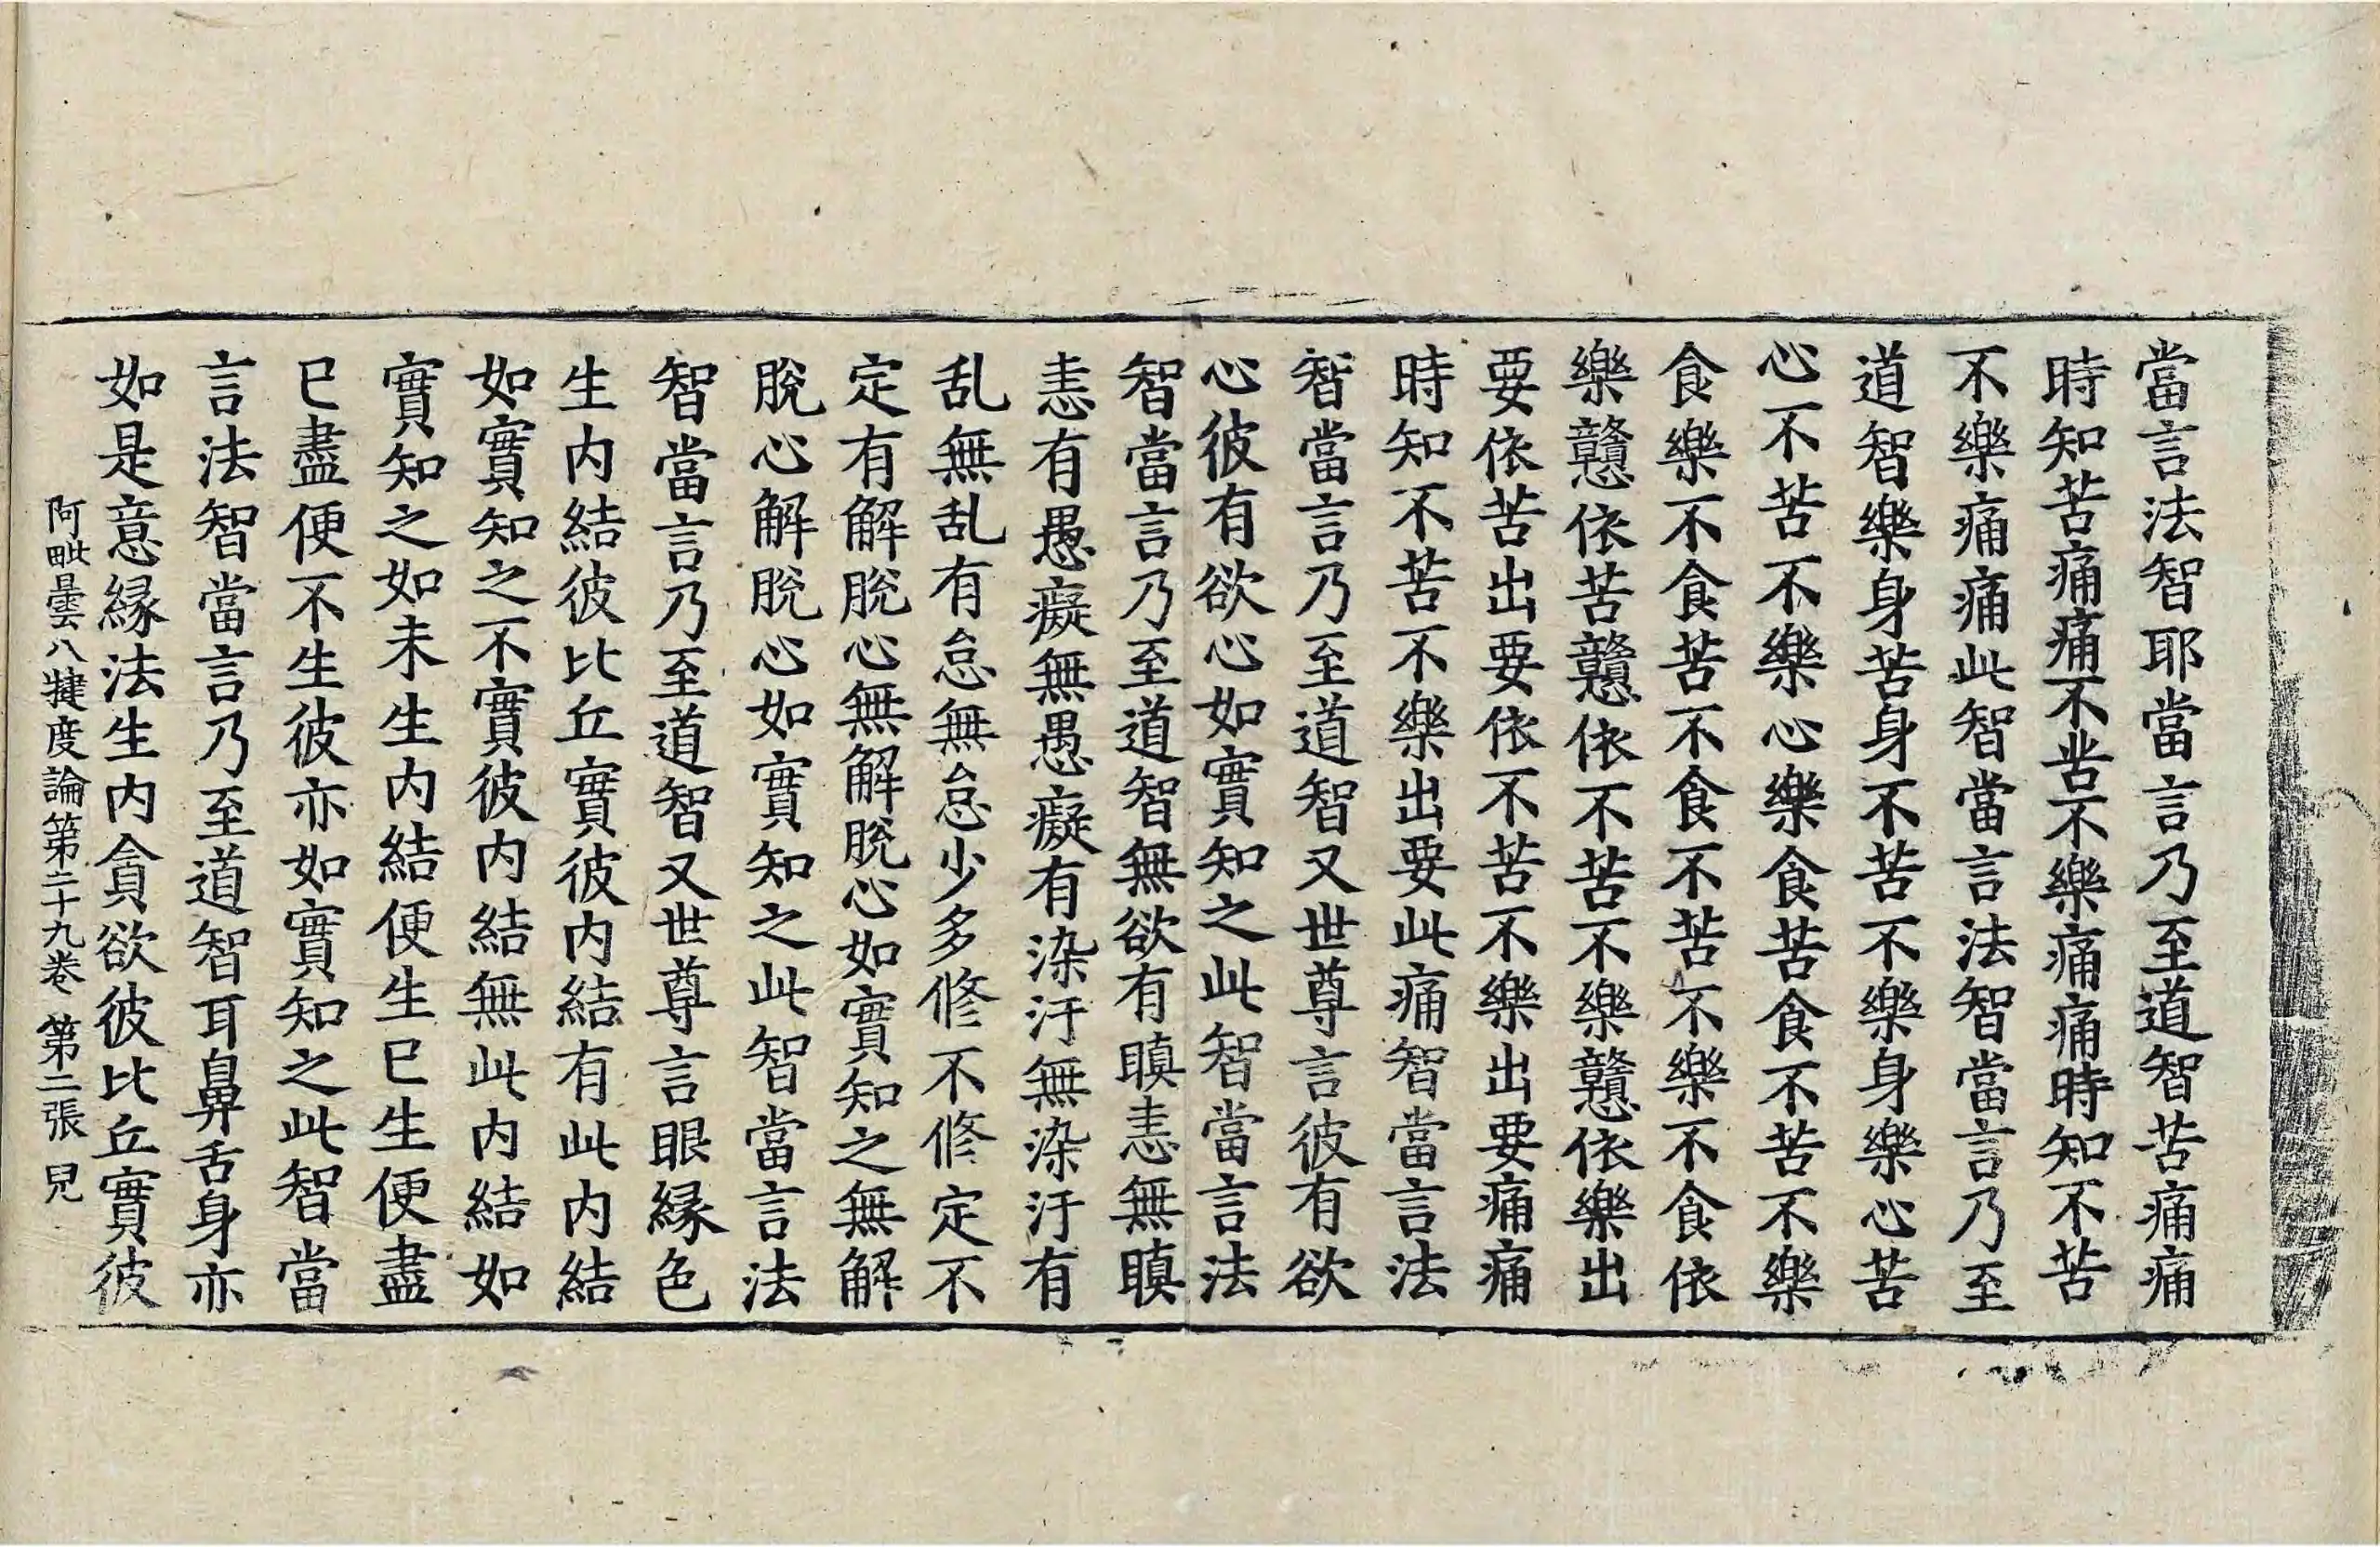 當言法智耶當言乃至道智苦痛痛
時知苦痛痛不苦不樂痛痛時知不苦
不樂痛痛此智當言法智當言乃至
道智樂身苦身不苦不樂身樂心苦
心不苦不樂心樂食苦食不苦不樂
食樂不食苦不食不苦不樂不食依
樂戅依苦戅依不苦不樂戅依樂出
要依苦出要依不苦不樂出要痛痛
時知不苦不樂出要此痛智當言法
智當言乃至道智又世尊言彼有欲
心彼有欲心如實知之此智當言法
智當言乃至道智無欲有瞋恚無瞋
恚有愚癡無愚癡有染汙無染汙有
乱無乱有怠無怠少多修不修定不
定有解脫心無解脫心如實知之無解
脫心解脫心如實知之此智當言法
智當言乃至道智又世尊言眼緣色
生内結彼比丘實彼内結有此内結
如實知之不實彼内結無此内結如
實知之如未生内結便生已生便盡
已盡便不生彼亦如實知之此智當
言法智當言乃至道智耳鼻舌身亦
如是意緣法生内貪欲彼比丘實彼
阿毗曇八犍度論第二十九卷 第二張 皃